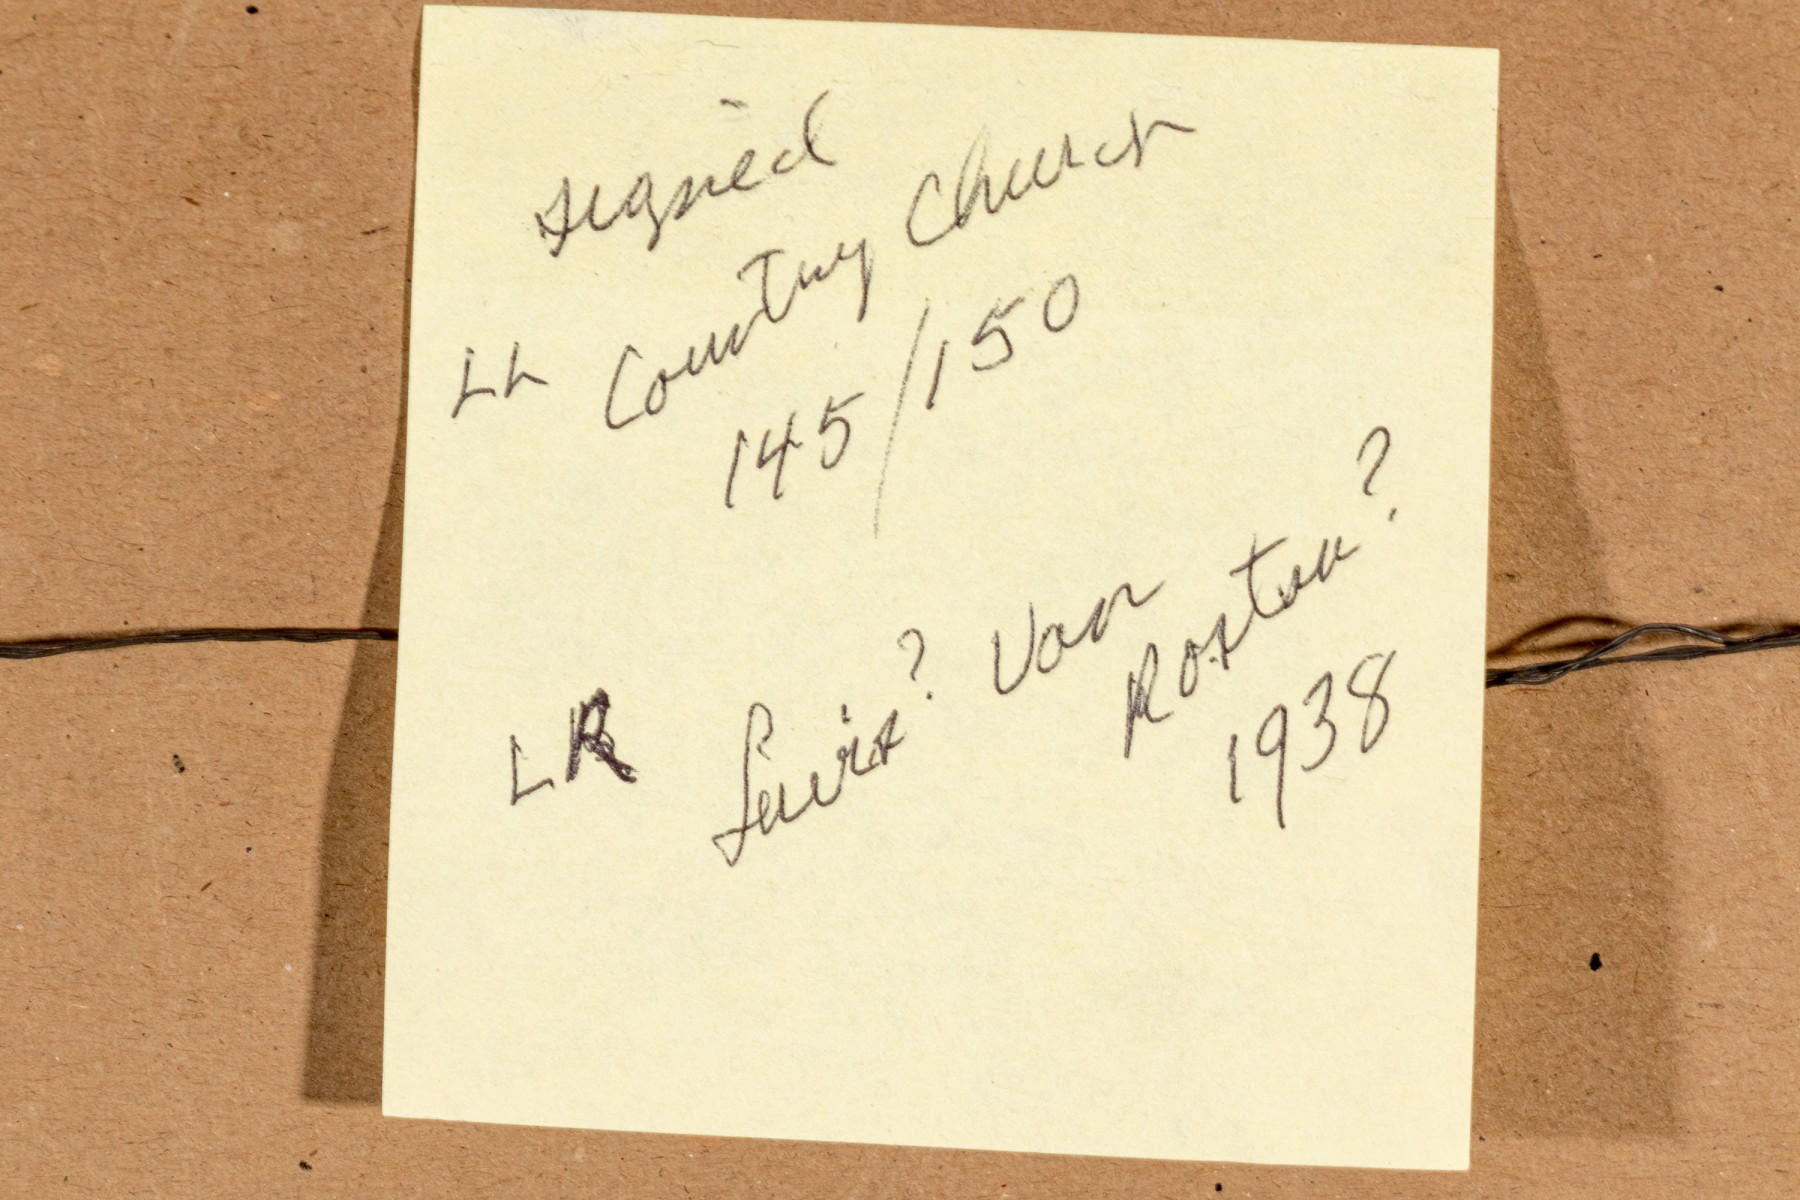 signed
LL Country Church
145/150
LR Luix? Van
Roxten?
1938